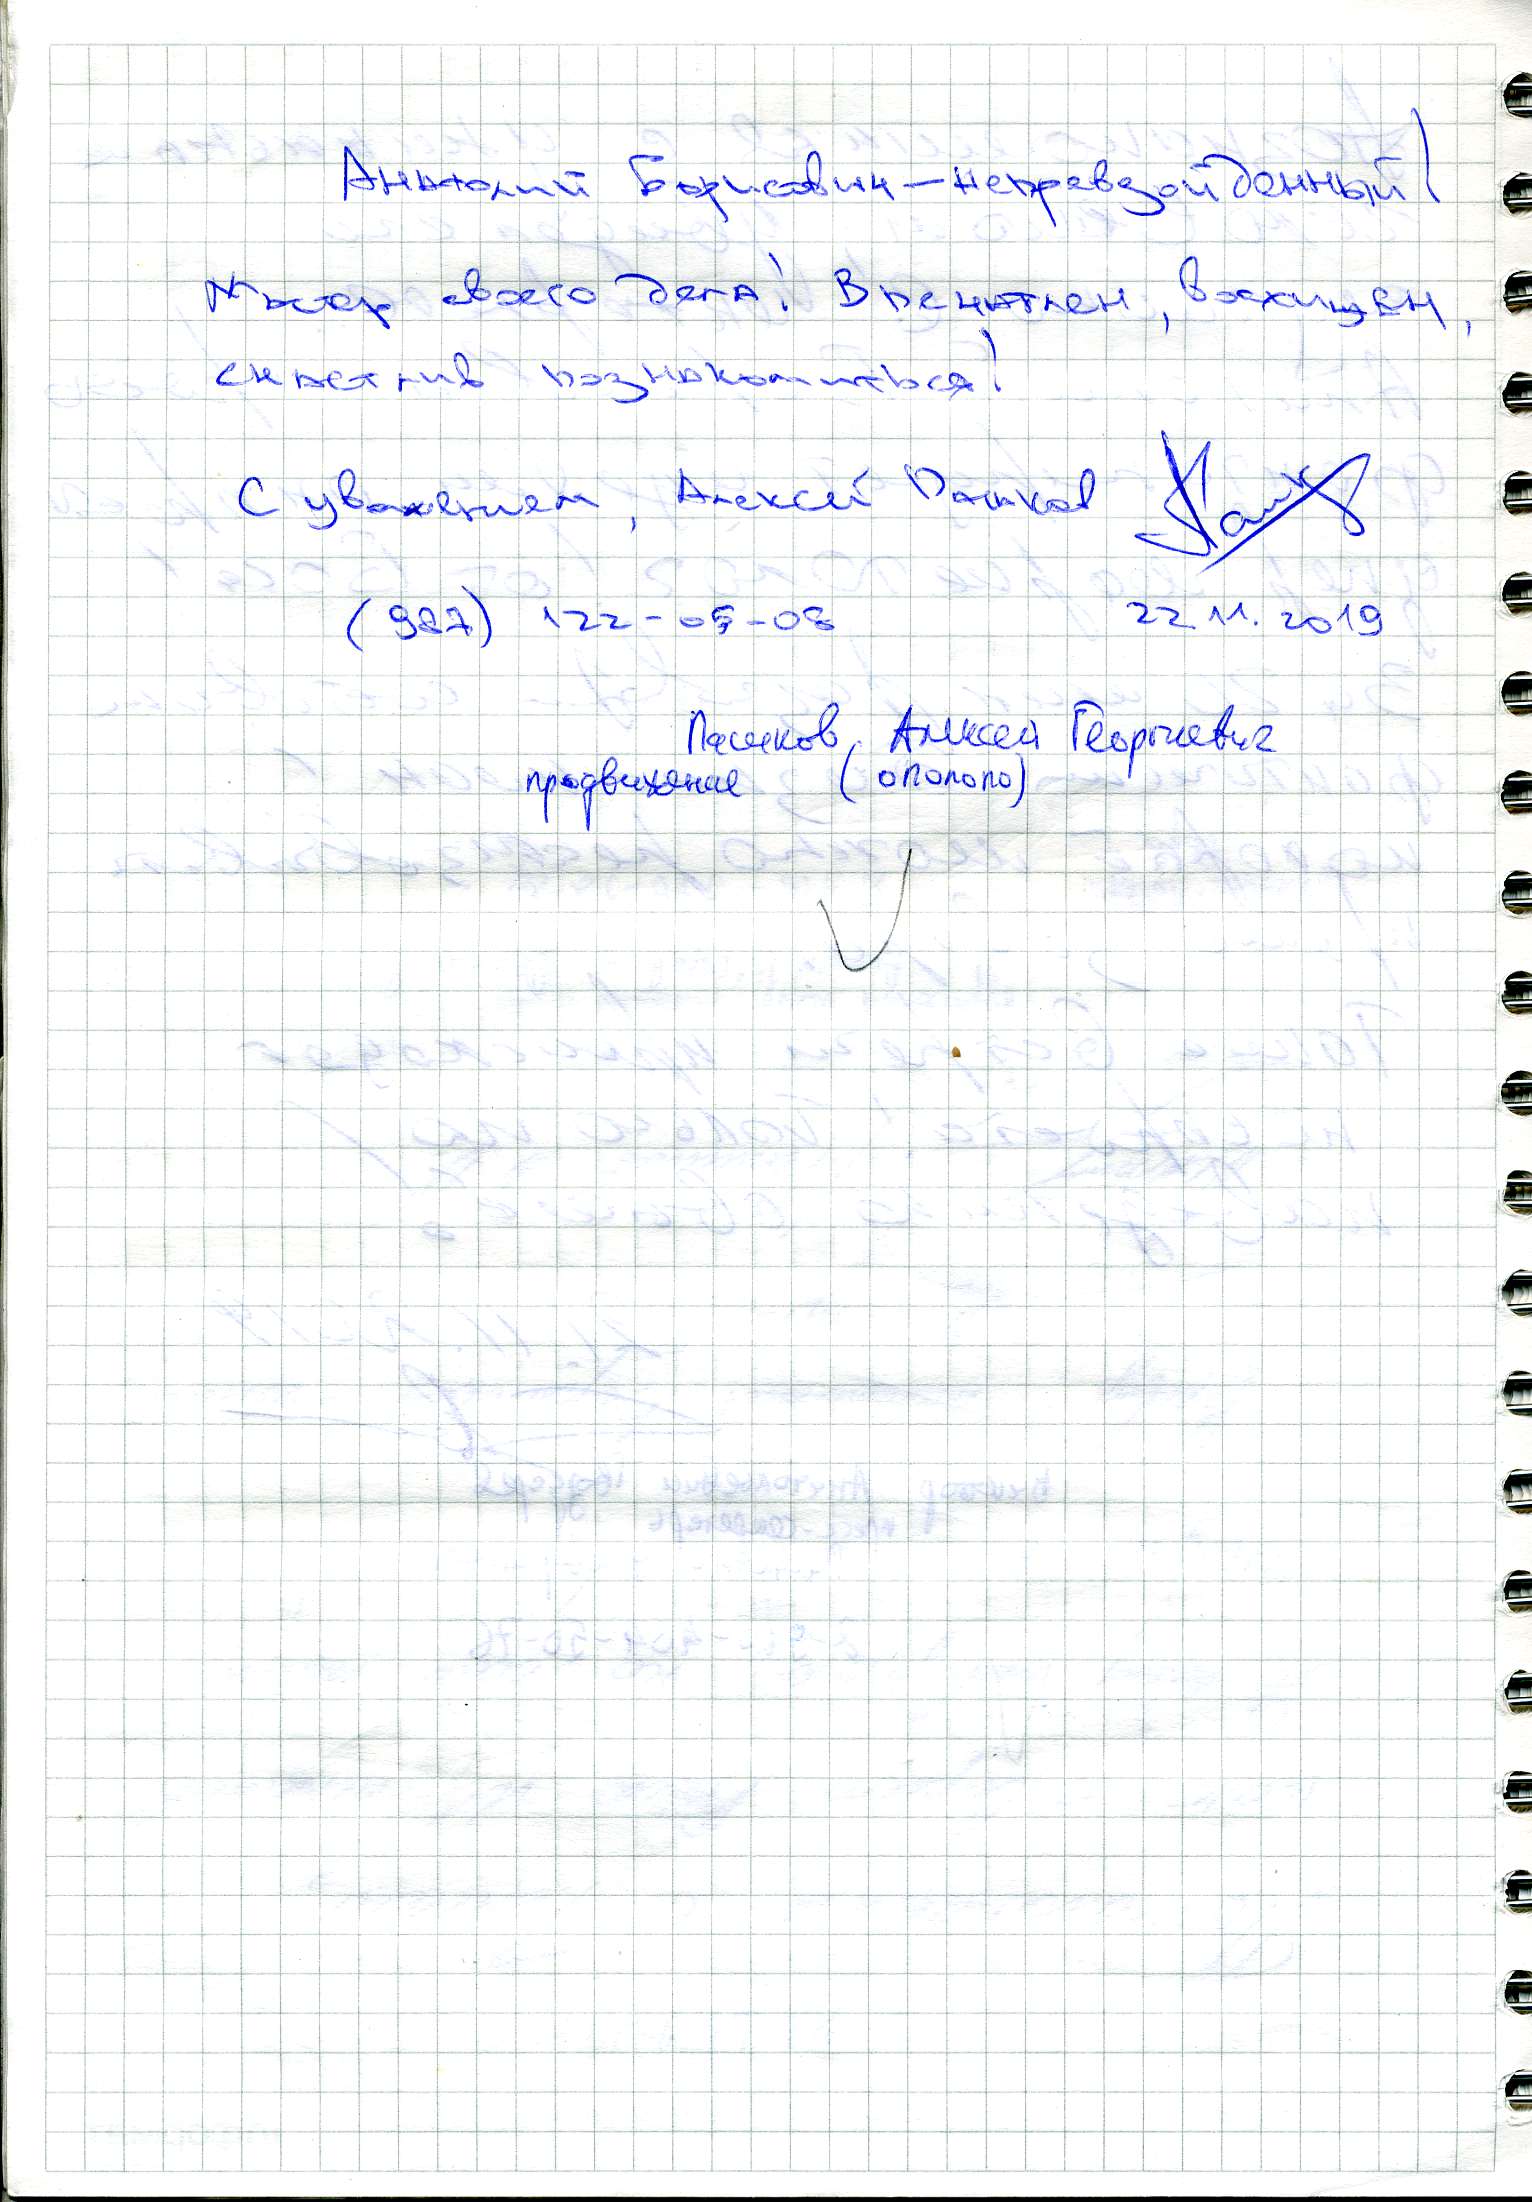 Анатолий Борисович — непревзойденный!
Мастер своего дела! Впечатлен, восхищен,
счастлив познакомиться!
С уважением, Алексей Пашков
(987) 122-05-08 22.11.2019
Пашков Алексей Георгиевич
продвижение (ополопо)